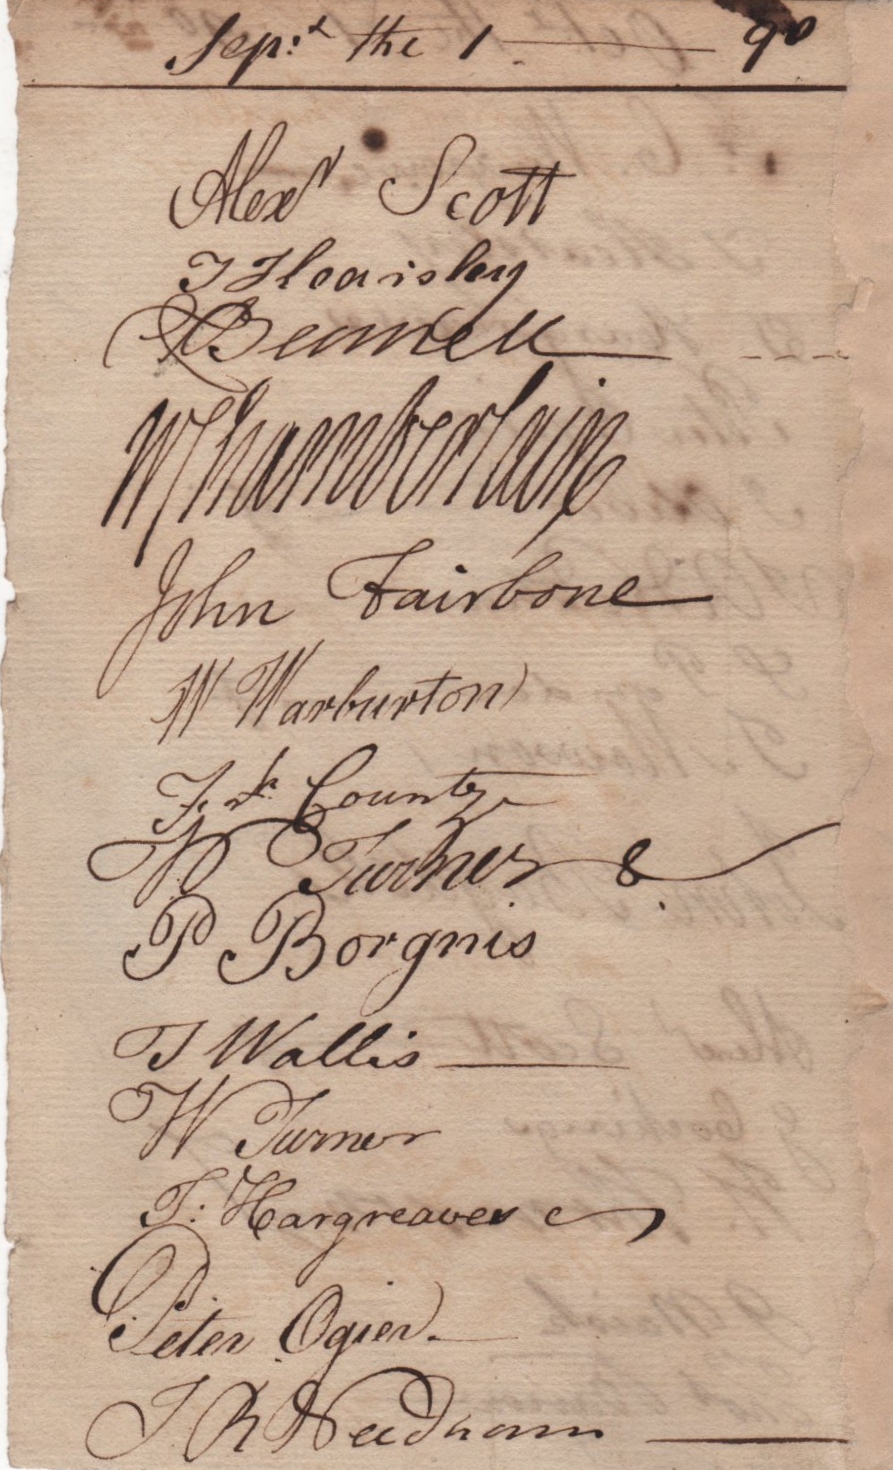 Sep.t the 1 — 90
Alexr Scott
T Hearsley
Bennell
W Chamberlain
John Fairbone
W Warburton
Frk County
W Turner &
P Borgnis
T Wallis —
W Turner
T: Hargreaves
Peter Ogier. —
J R Needham —